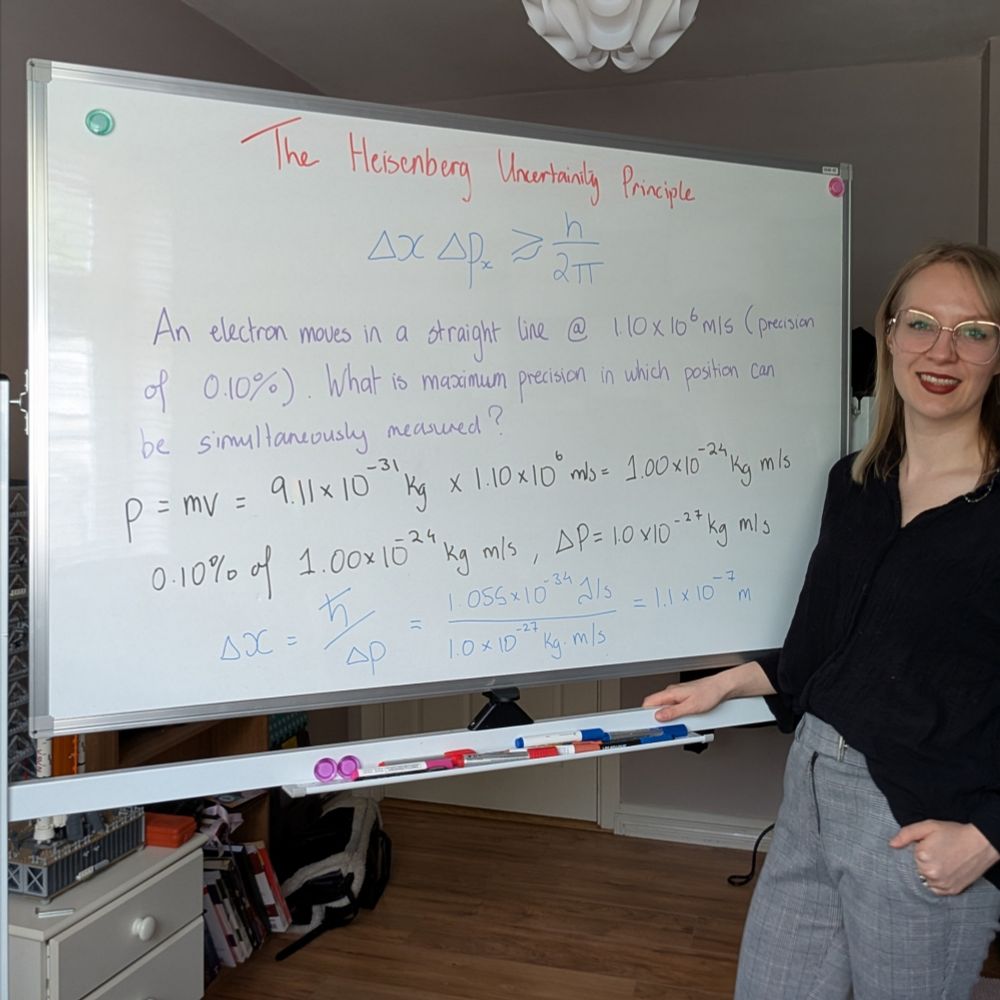 The Heisenberg Uncertainity Principle
Δx Δpₓ ⩾ h/2π
An electron moves in a straight line @ 1.10 x 10⁶ m/s (precision
of 0.10%). What is maximum precision in which position can
be simultaneously measured?
p = mv = 9.11 x 10⁻³¹ kg x 1.10 x 10⁶ m/s = 1.00 x 10⁻²⁴ kg m/s
0.10% of 1.00 x 10⁻²⁴ kg m/s, ΔP = 1.0 x 10⁻²⁷ kg m/s
Δx = ħ/Δp = 1.055 x 10⁻³⁴ J/s / 1.0 x 10⁻²⁷ kg. m/s = 1.1 x 10⁻⁷ m